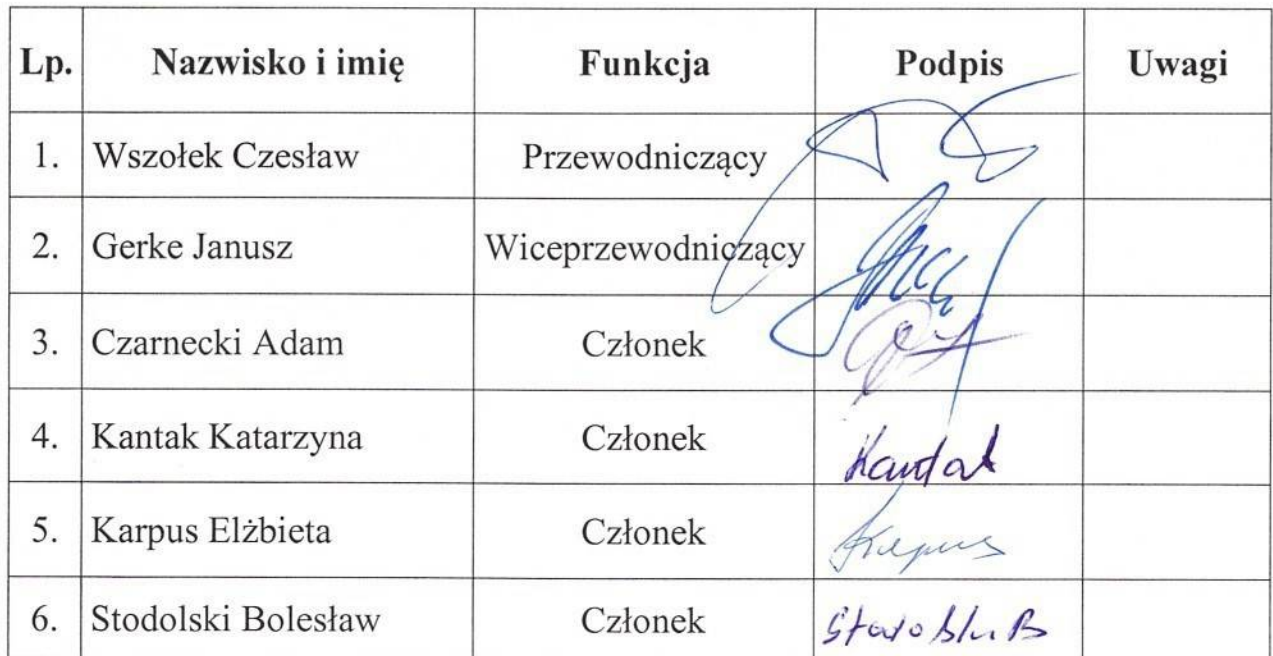 Lp. Nazwisko i imię Funkcja Podpis Uwagi
1. Wszołek Czesław Przewodniczący
2. Gerke Janusz Wiceprzewodniczący
3. Czarnecki Adam Członek
4. Kantak Katarzyna Członek Kantak
5. Karpus Elżbieta Członek Karpus
6. Stodolski Bolesław Członek